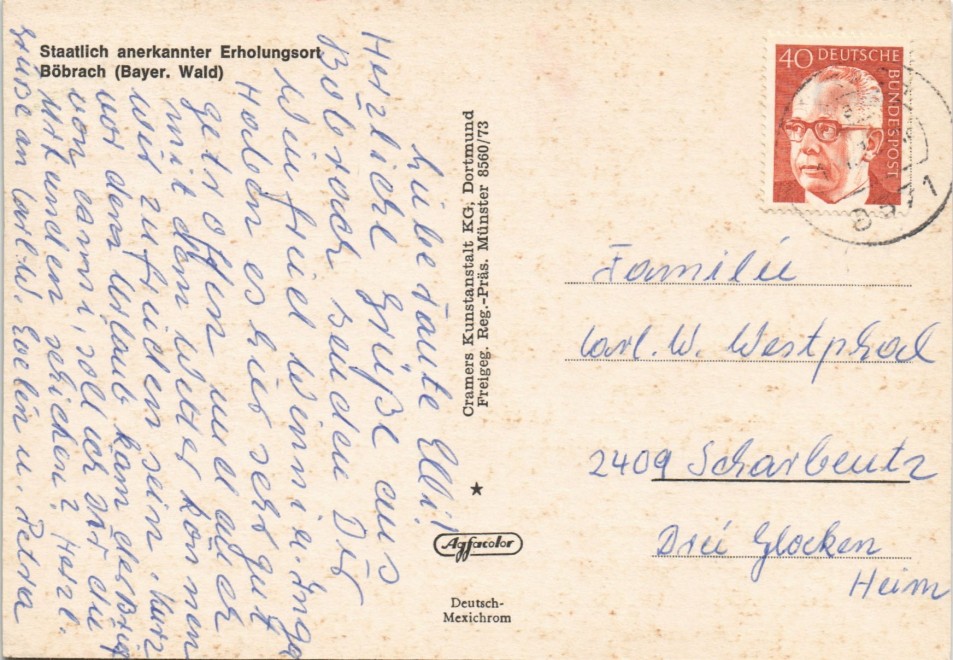 Staatlich anerkannter Erholungsort
Böbrach (Bayer. Wald)
Liebe Tante Elli!
Herzliche Grüße aus
Bobrach senden Dir
Wilfried Winni u. Inga
Haben es hier sehr gut
getroffen und auch
mit dem Wetter können
wir zufrieden sein. Kurz
vor dem Urlaub kam der Brief
von Cammi, soll ich Dir die
Urkunden schicken? Herzl.
Grüße an Carl W. Evelin u. Petra
Cramers Kunstanstalt KG, Dortmund
Freigeg. Reg.-Präs. Münster 8560/73
Agfacolor
Deutsch-
Mexichrom
40 DEUTSCHE
BUNDESPOST
8371
Familie
Carl. W. Westphal
2409 Scharbeutz
Drei Glocken
Heim